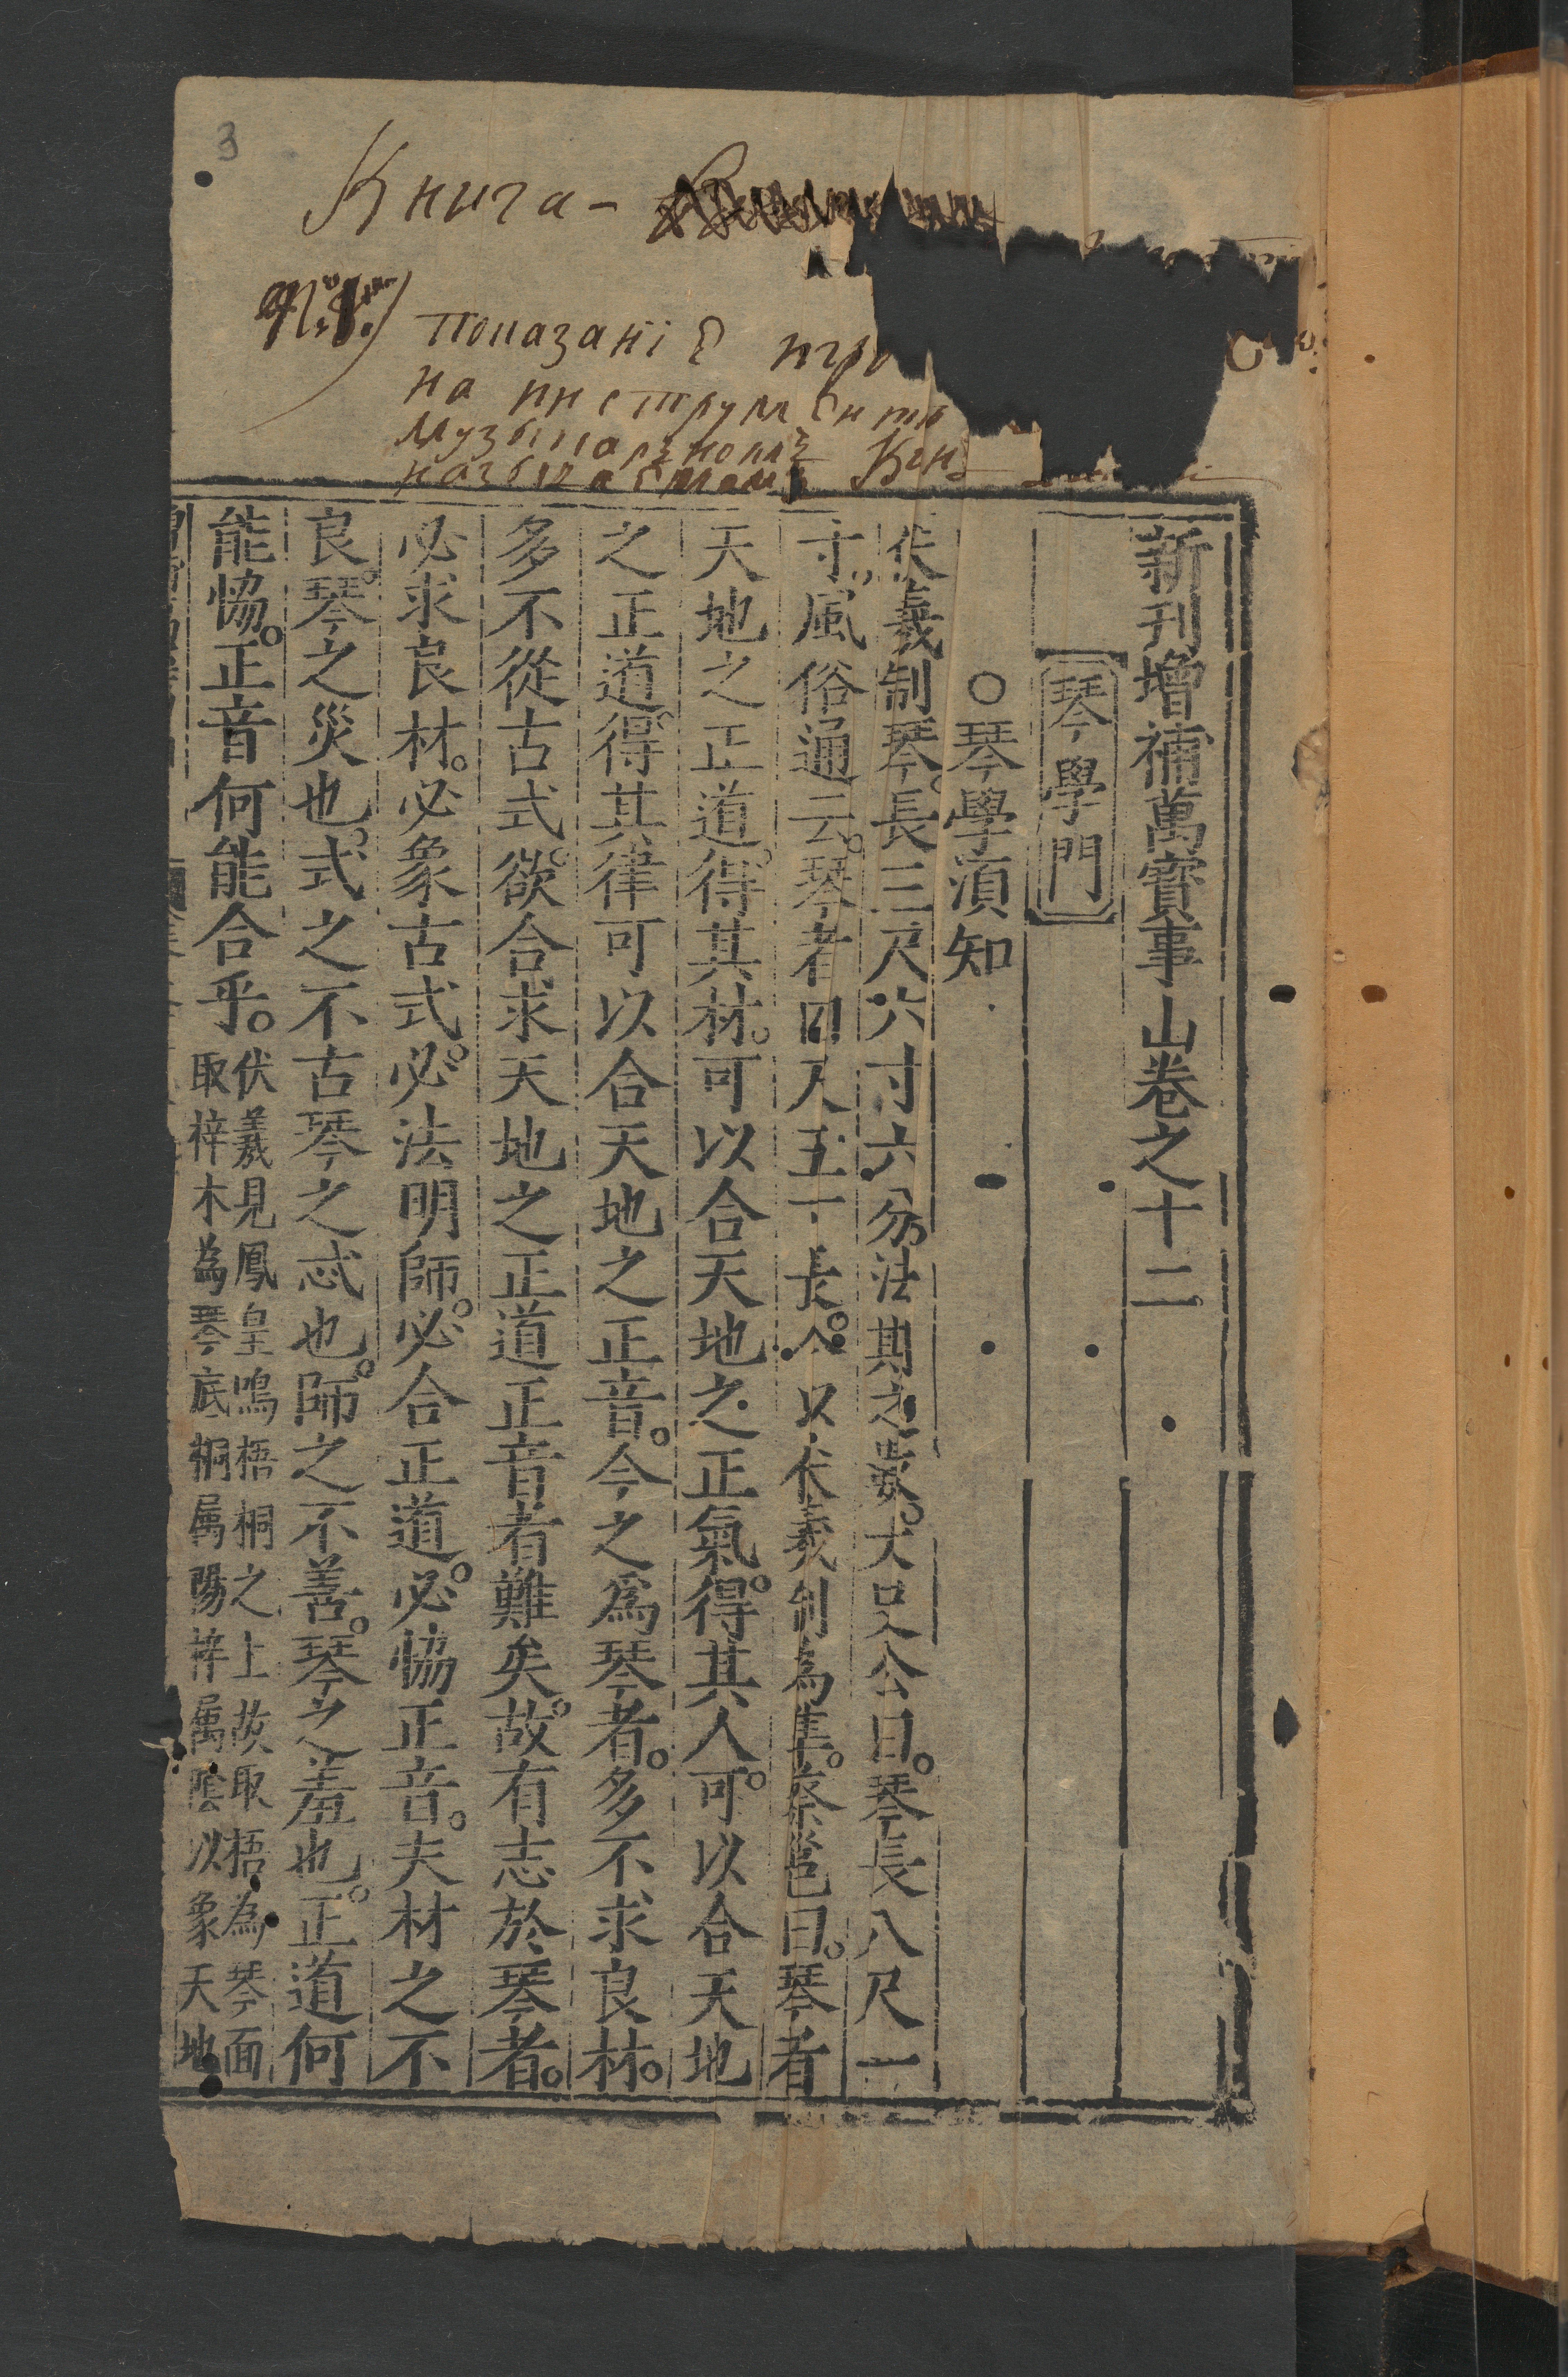 3
Книга-
показаніе игр
на инструменте
музыкалъномъ Кин
называемомъ
新刊增補萬寶事山卷之十二
琴學門
○琴學須知
伏羲制琴。長三尺六寸六分。法期之數。大吕公曰。琴長八尺一
寸。風俗通云。琴者四尺五寸長。以伏羲制為隼。蔡邕曰。琴者
天地之正道。得其材。可以合天地之正氣。得其人。可以合天地
之正道。得其律可以合天地之正音。今之爲琴者。多不求良材。
多不從古式。欲合求天地之正道正音者難矣。故有志於琴者。
必求良材。必象古式。必法明師。必合正道。必恊正音。夫材之不
良。琴之災也。式之不古琴之忒也。師之不善。琴之羞也。正道何
能恊。正音何能合乎。
伏羲見鳳皇鳴梧桐之上故取梧為琴面
取梓木為琴底桐属陽梓属陰以象天地